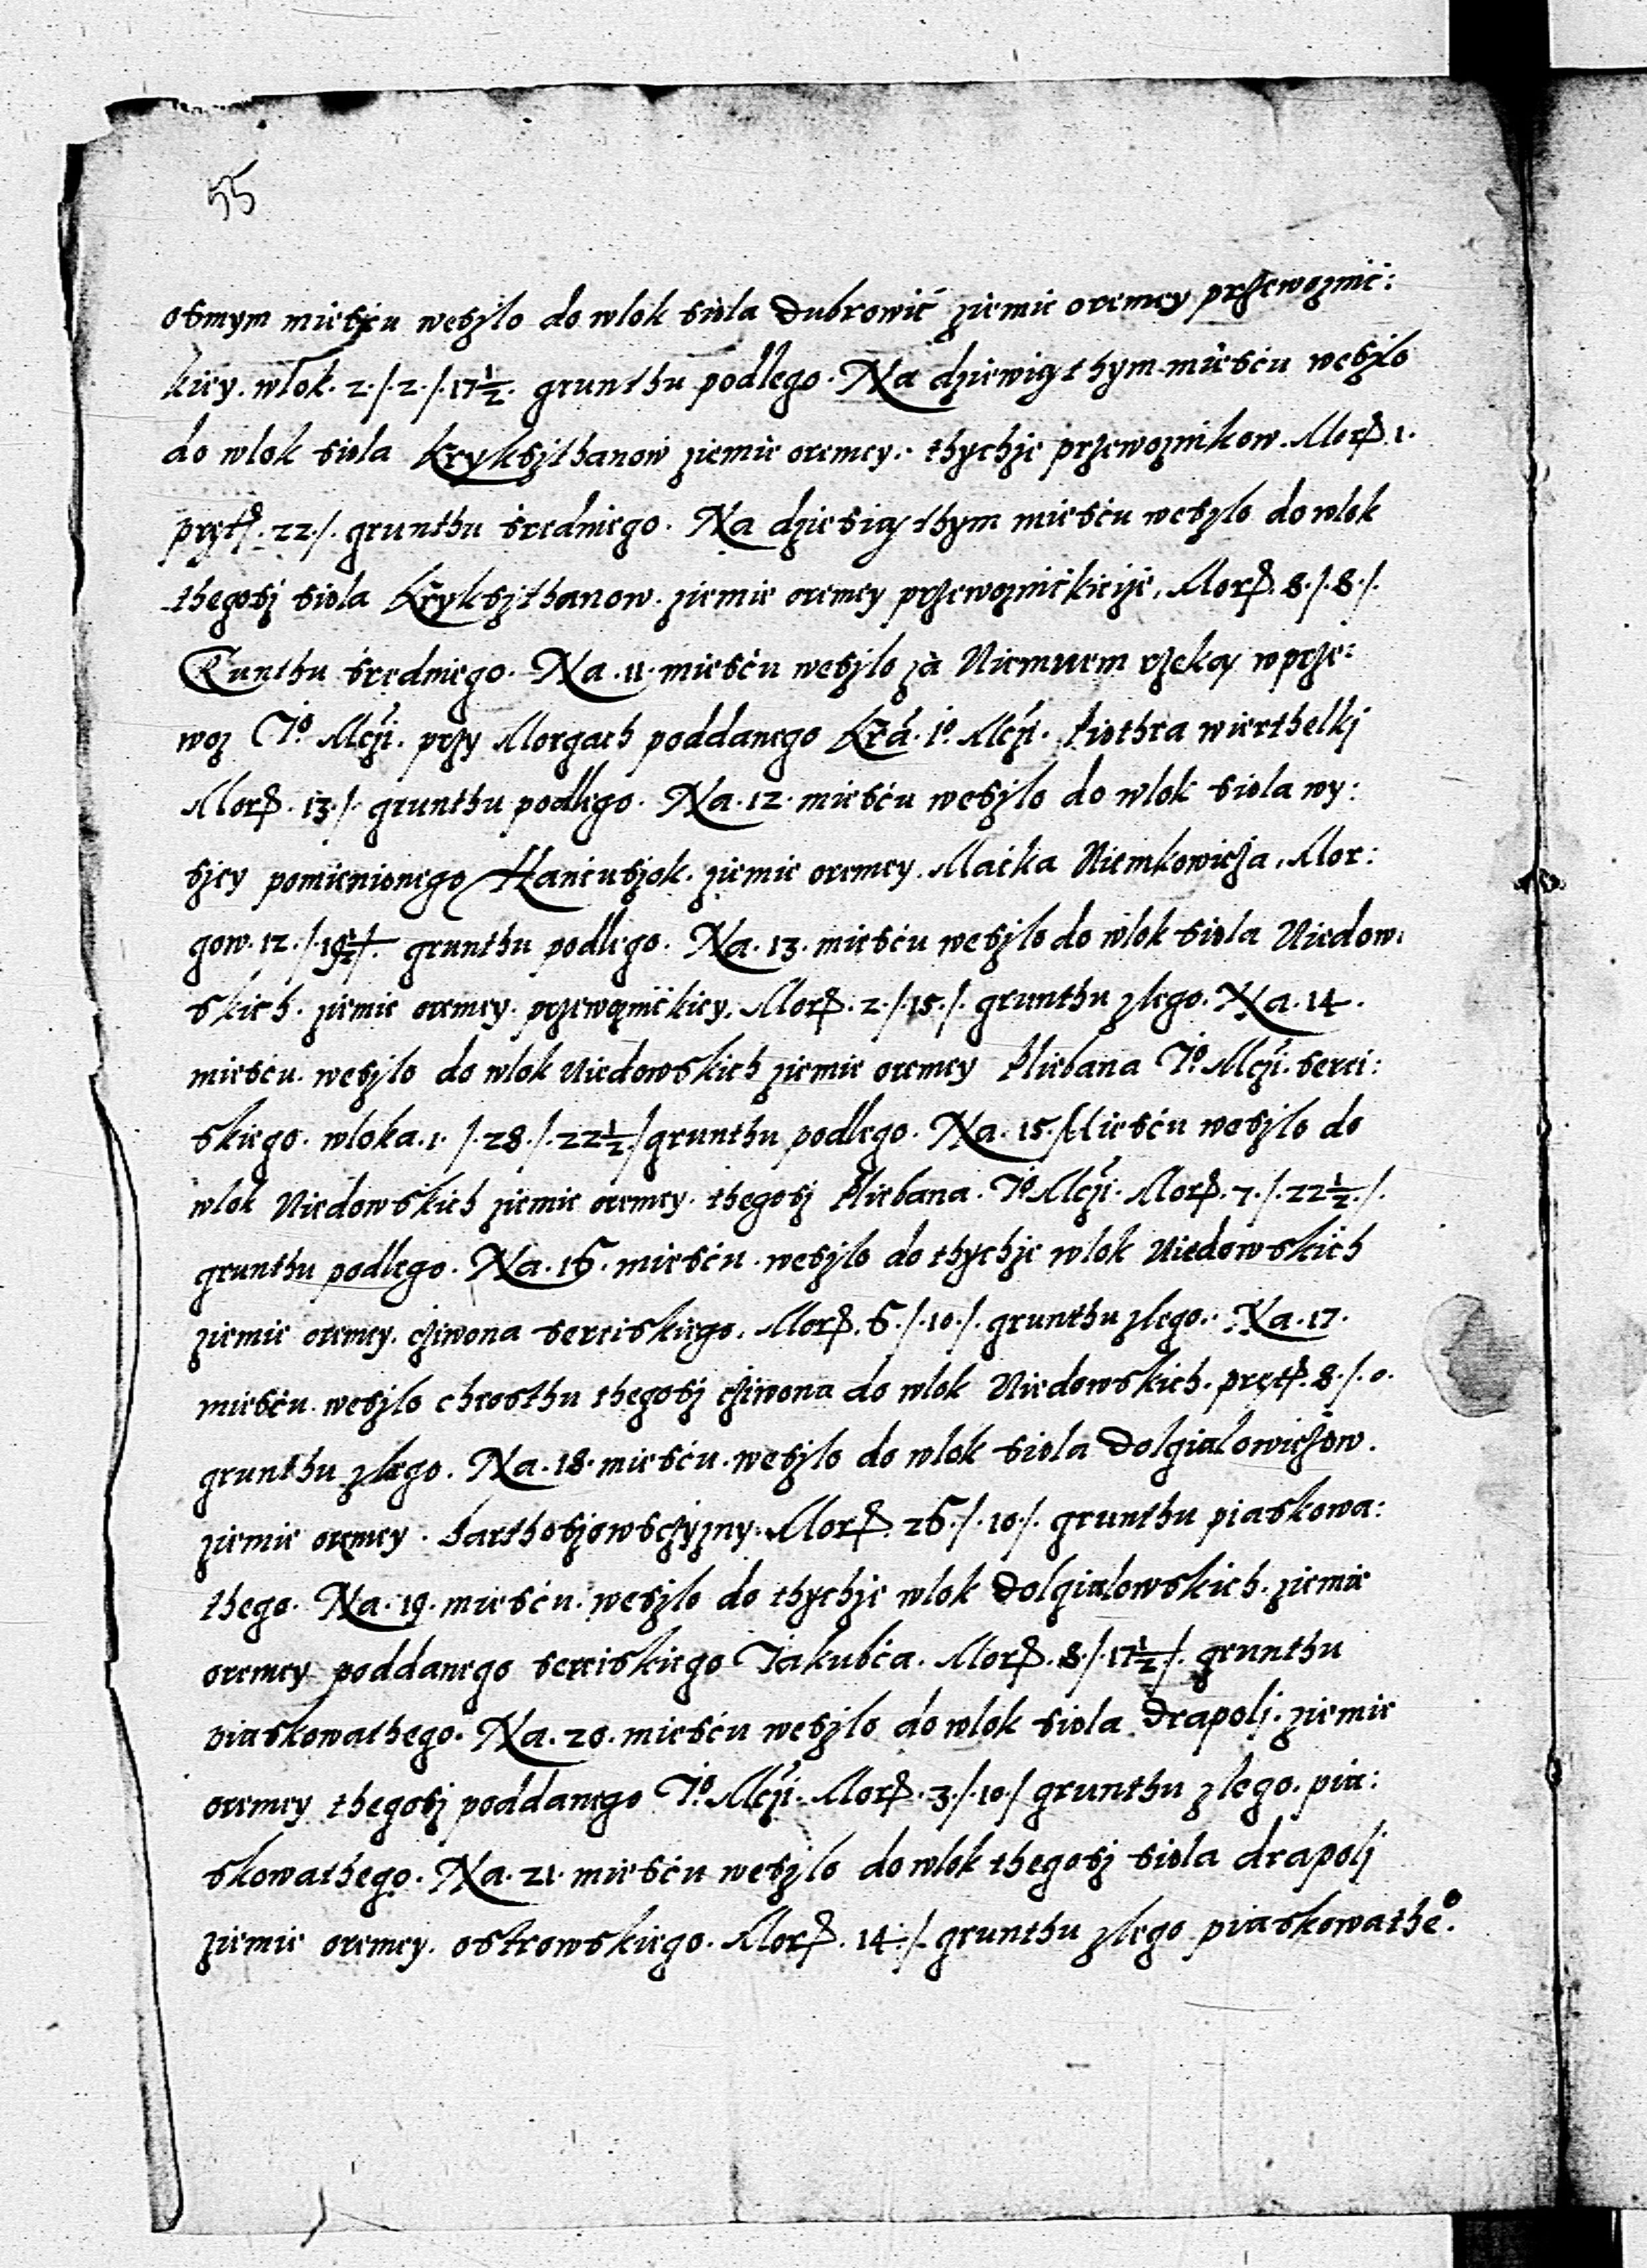 55
osmym miesću weszlo do wlok siola Dubrowić ziemie oremey przewoznić:
kiey. wlok. 2./.2./.17½. grunthu podlego. Na dziewiąthym miesću weszlo
do wlok siola Krykszthanow ziemie oremey. thychże przewoznikow. Morg. 1.
pręt. 22./. grunthu średniego. Na dziesiąthym miesću weszlo do wlok
thegosz siola Krykszthanow. ziemie oremey przewoznićkieiże. Morg. 8./.8./.
Gunthu średniego. Na .11. miesću weszlo zà Niemnem rzeką w prze:
woz Jº Mczi. przy Morgach poddanego Krá. Jº. Mczi. Piothra wierthelki
Morg. 13./. grunthu podlego. Na .12. miesću weszlo do wlok siola wy:
szey pomienionego Hancuszok. ziemie oremey. Maćka Niemkowicza. Mor:
gow. 12./.19½/. grunthu podlego. Na. 13. miesću weszlo do wlok siola Niedow:
skich. ziemie oremey. przewoznićkiey. Morg. 2./.15./. grunthu zlego. Na. 14.
miesću. weszlo do wlok Niedowskich ziemie oremey Pliebana Jº. Mczi. serei:
skiego. wloka. 1. /. 28./. 22½./ grunthu podlego. Na. 15. Miesću weszlo do
wlok Niedowskich ziemie oremey. thegosz Pliebana. Jº Mczi. Morg. 7./.22½./.
grunthu podlego. Na. 16. miesću. weszlo do thychże wlok Niedowskich
ziemie oremey. cziwona sereiskiego. Morg. 6./.10./. grunthu zlego. Na. 17.
miesću. weszlo chrosthu thegosz cziwona do wlok Niedowskich. pręt. 8./.0.
grunthu zlego. Na. 18. miesću. weszlo do wlok siola Dolgialowiczow.
ziemie oremey. Barthoszowsczyzny. Morg. 26./.10./. grunthu piaskowa:
thego. Na. 19. miesću. weszlo do thychże wlok Dolgialowskich. ziemie
oremey poddanego sereiskiego Jakubća. Morg. 8./.17½/. grunthu
piaskowathego. Na. 20. miesću weszlo do wlok siola Drapoli. ziemie
oremey thegosz poddanego Jº. Mczi. Morg. 3./.10./ grunthu zlego. pia:
skowathego. Na. 21. miesću weszlo do wlok thegosz siola drapoli
ziemie oremey. ostrowskiego. Morg. 14./. grunthu zlego piaskowatheº.